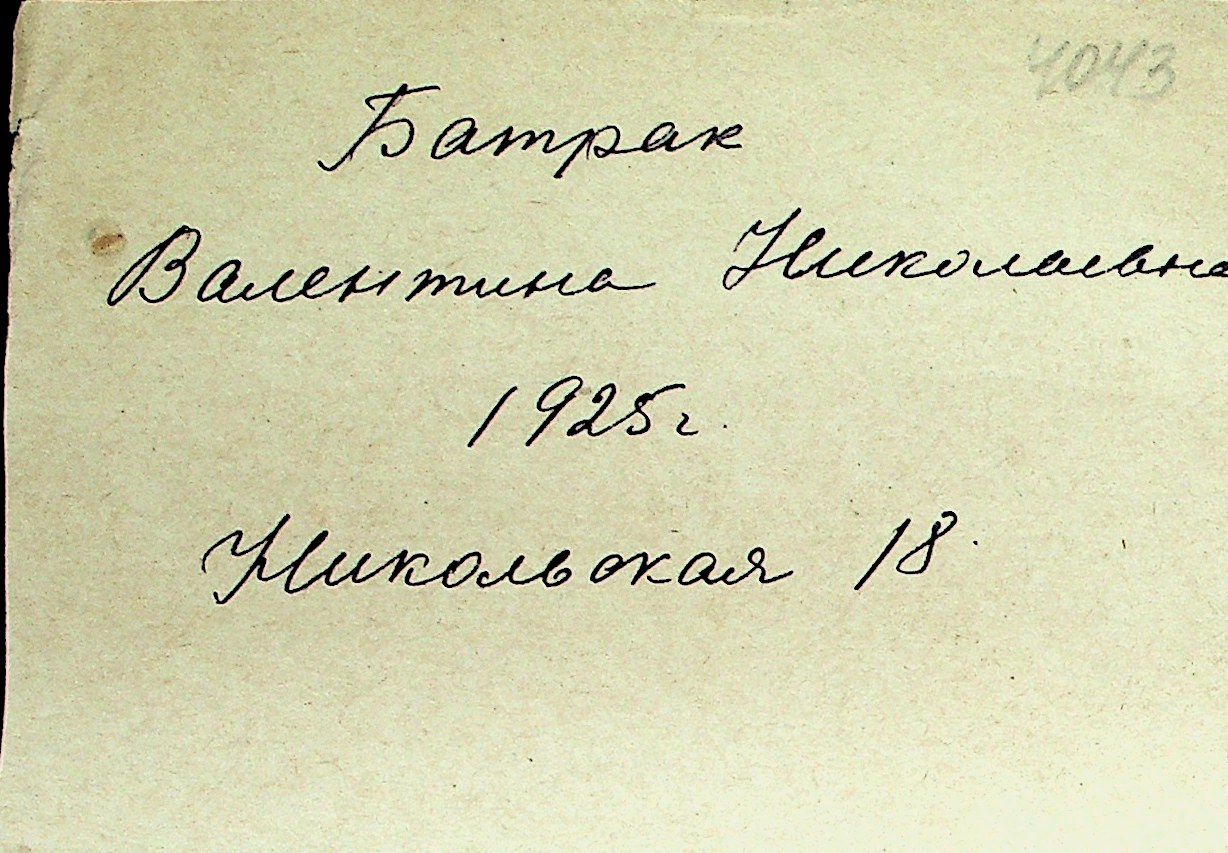 4043
Батрак
Валентина Николаевна
1925г.
Никольская 18.